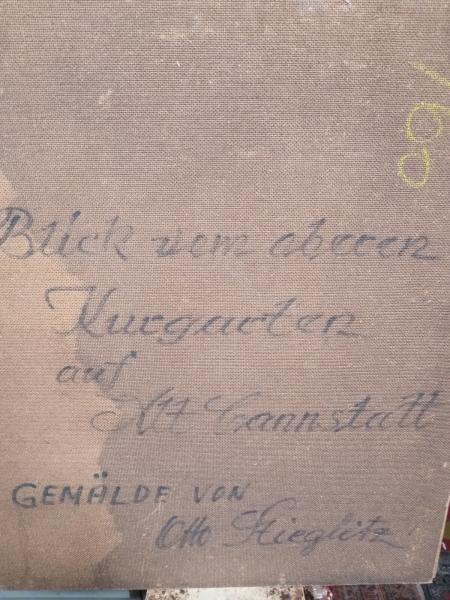 160
Blick vom oberen
Kurgarten
auf
Alt Cannstatt
GEMÄLDE VON
Otto Stieglitz